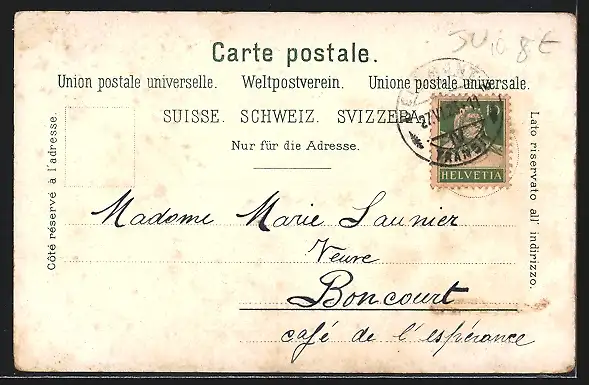 JU 10 8€
Carte postale.
Union postale universelle. Weltpostverein. Unione postale universale.
SUISSE. SCHWEIZ. SVIZZERA.
Nur für die Adresse.
Côté réservé à l'adresse.
Lato riservato all' indirizzo.
TRANSIT
HELVETIA
Madame Marie Saunier
Veuve
Boncourt
café de l'espérance